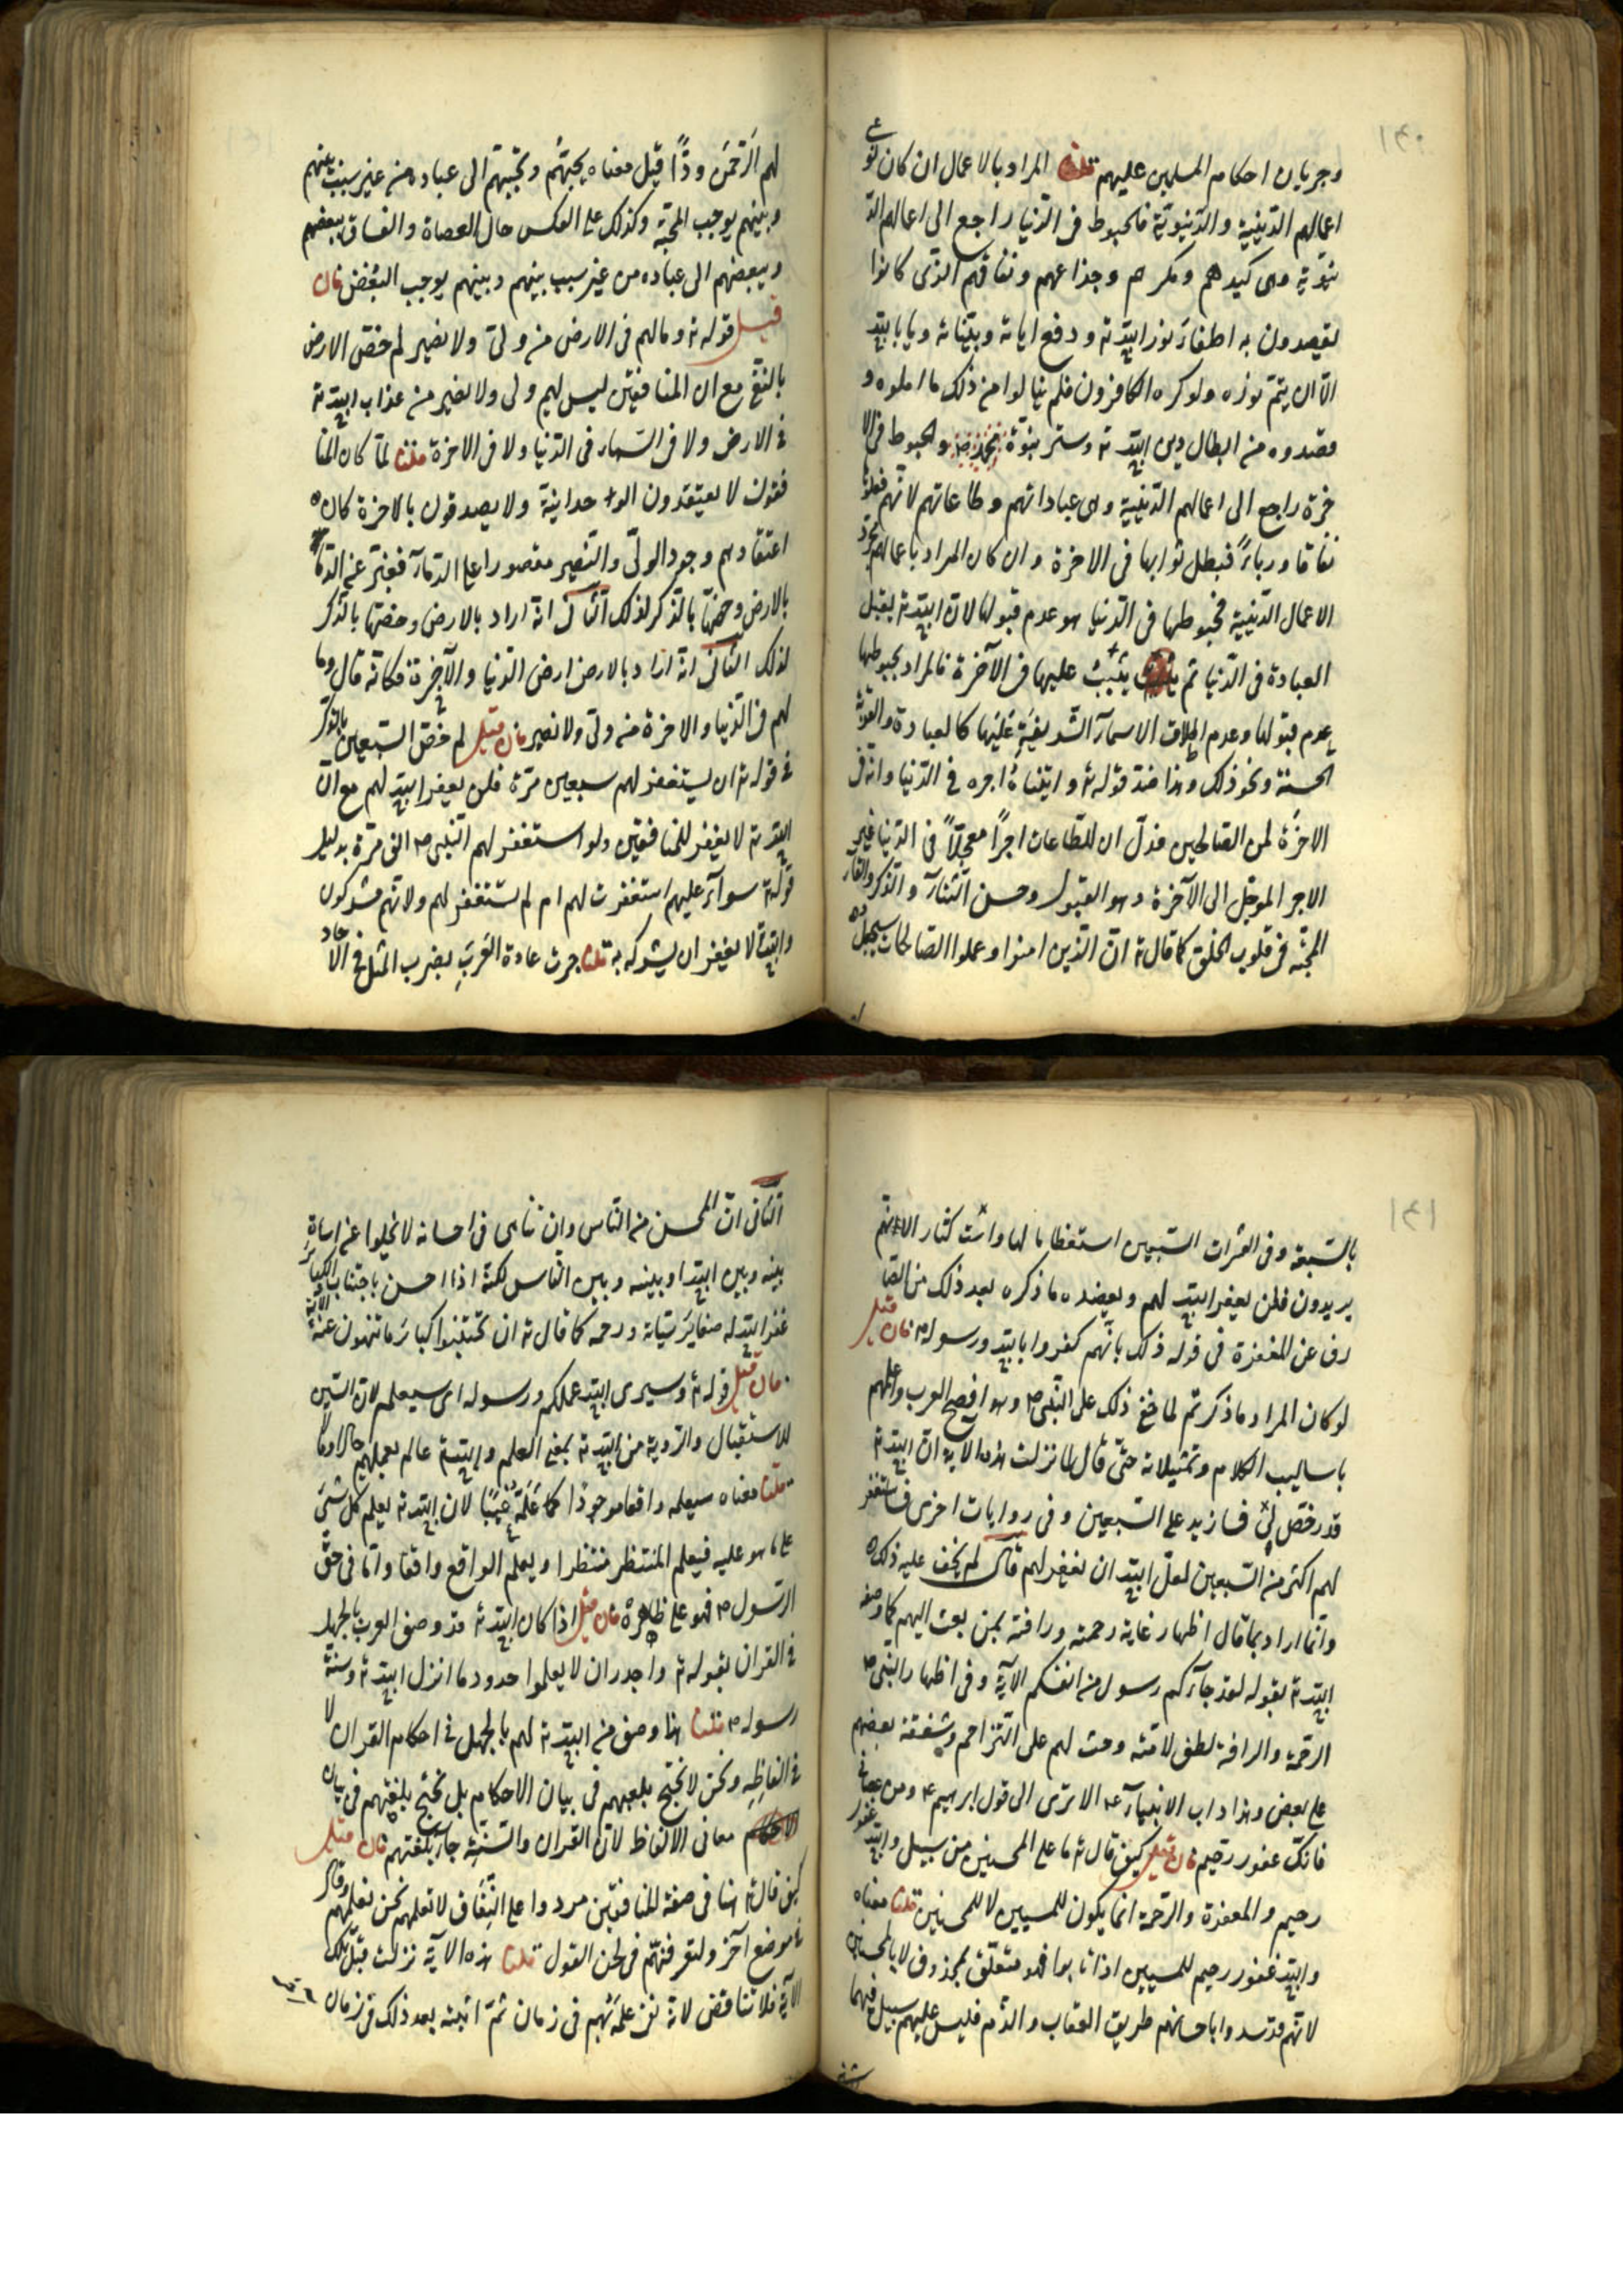 ١٤٠
وجريان احكام المسلمين عليهم قلنا المراد بالاعمال ان كان نوعي
اعمالهم الدّينيّة والدّنيويّة فالحبوط فى الدّنيا راجع الى اعمالهم الدّ
نيويّة وهى كيدهم ومكرهم وخداعهم ونفاقهم الّذى كانوا
يقصدون به اطفاء نور الله ته ودفع اياته وبيّناته ويابى الله
الّا ان يتمّ نوره ولو كره الكافرون فلم ينالوا من ذلك ما املوه و
قصدوه من ابطال دين الله ته وستر نبوّة محمّد ص والحبوط فى الا
خرة راجع الى اعمالهم الدّينيّة وهى عباداتهم وطاعاتهم لانّهم فعلوها
نفاقا ورياءً فبطل ثوابها فى الاخرة وان كان المراد باعمالهم مجرّد
الاعمال الدّينيّة فحبوطها فى الدّنيا هو عدم قبولها لانّ الله ته يقبل
العبادة فى الدّنيا ثم يثيب عليها فى الآخرة فالمراد بحبوطها
عدم قبولها وعدم اطلاق الاسمآء الشّريفيّة عليها كالعبادة والقربة
الحسنة ونحو ذلك وهذا ضدّ قوله ته واتيناهُ اجره فى الدّنيا وانه فى
الاخرَةِ لمن الصّالحين فدلّ ان للطّاعات اجرًا معجّلاً فى الدّنيا غير
الاجر المؤجّل الى الآخرة وهو القبول وحسن الثّنآء والذّكر والقاء
المحبّة فى قلوب الخلق كما قال ته انّ الّذين امنوا وعملوا الصّالحات سيجعل
لهم الرّحمَن وُدًّا قيل معناه يحبّهُم ويحبّبهم الى عباده من غير سبب بينهم
وبينهم يوجب المحبّة وكذلك على العكس حال العصاة والفساق يبغضهم
ويبغضهم الى عباده من غير سبب بينهم وبينهم يوجب البُغض فان
قيل قوله ته ومالهم فى الارض من ولىّ ولا نصير لم خصّ الارض
بالنّفى مع ان المنافقين ليس لهم ولى ولا نصير من عذاب الله ته
فى الارض ولا فى السّماء فى الدّنيا ولا فى الاخرة قلنا لمّا كان المنا
فقون لا يعتقدون الوحدانيّة ولا يصدقون بالاخرة كان
اعتقادهم وجود الولىّ والنّصير مقصورا على الدّنيا فعبّر عن الدّنيا
بالارض وخصّها بالذّكر لذلك الثّانى انّه اراد بالارض وخصّها بالذّكر
لذلك الثّانى انّه اراد بالارض ارض الدّنيا والآخرة فكانّه قال وما
لهم فى الدّنيا والاخرة من ولىّ ولا نصير فان قيل لم خصّ السّبعين بالذّكر
فى قوله ته ان يستغفر لهم سبعين مرّة فلن يغفر الله لهم مع انّ
الله ته لا يغفر للمنافقين ولو استغفر لهم النّبى ص الف مرّة بدليل
قوله ته سوآء عليهم استغفرت لهم ام لم تستغفر لهم ولانّهم مشركون
والله ته لا يغفر ان يشرك به قلنا جرت عادة العَربِ بضرب المثل فى الاٰحاد
١٤١
بالسّبعة وفى العشرات السّبعين استعظاما لها واستكثار الا انهم
يريدون فلن يغفر الله لهم ويعضده ما ذكره بعد ذلك من الصّا
رف عن المغفرة فى قوله ذلك بانّهم كفروا بالله ورسوله فان قيل
لو كان المراد ما ذكرتم لما خفى ذلك على النّبى ص وهو افصح العرب واعلمهم
باساليب الكلام وتمثيلاته حتّى قال لما نزلت هذه الآية انّ الله ته
قد رخّص لى فسازيد على السّبعين وفى روايات اخرى فساستغفر
لهم اكثر من السّبعين لعلّ الله ان يغفر لهم قلنا لم يخف عليه ذلك
وانّما اراد بما قال اظهار غاية رحمته ورافته بمن بعث اليهم كما وصفه
الله ته بقوله لقد جآءكم رسول من انفسكم الآية وفى اظهار النّبى ص
الرّحمة والرافة لطف لامّته وحث لهم على التّراحم وشفقة بعضهم
على بعض وهذا داب الانبيآء عم الا ترى الى قول ابراهيم عم ومن عصانى
فانّك غفور رّحيم فان قيل كيف قال ته ما على المحسنين من سبيل والله غفور
رحيم والمغفرة والرّحمة انما يكون للمسيئين لا للمحسنين قلنا معناه
والله غفور رحيم للمسيئين اذا تابوا فهو متعلّق بمحذوف لا بالمحسنين
لانّهم قد سدوا باحسانهم طريق العقاب والذّم فليس عليهم سبيل فيهما
الثّانى انّ المحسن من النّاس وان تناهى فى احسانه لا يخلوا عن اساءة
بينه وبين الله او بينه وبين النّاس لكنّه اذا احسن باجتناب الكبائر
غفر الله له صغاير سيّاته ورحمه كما قال ته ان تجتنبوا كبائر ما تنهون عنه الآية
فان قيل قوله ته وسيرى الله عملكم ورسوله اى سيعلم لانّ السّين
للاستقبال والرّوية من الله ته بمعنى العلم والله ته عالم بعملهم حالا وما
قلنا معناه سيعلمه واقعا موجودًا كما عَلمَهُ غيبًا لان الله ته يعلم كل شىء
على ما هو عليه فيعلم المنتظر منتظرا ويعلم الواقع واقعا وامّا فى حقّ
الرّسول ص فهو على ظاهره فان قيل اذا كان الله ته قد وصف العرب بالجهل
فى القران بقوله ته واجدر ان لا يعلموا حدود ما انزل الله ته وسنّة
رسوله ص قلنا هذا وصف من الله ته لهم بالجهل فى احكام القران لا
فى الفاظِهِ ونحن لا نحتج بلغتهم فى بيان الاحكام بل نحتجّ بلغتهم فى بيان
معانى الالفاظ لانّ القران والسّنّة جاء بلغتهم فان قيل
كيف قال ته هنا فى صفة المنافقين مردوا على النِّفَاق لا تعلمهم نحن نعلمهم وقال
فى موضع آخر ولتعرفنّهُم فى لحن القول قلنا هذه الآية نزلت قبل تلك
الآية فلا تناقض لانّه نفى علمَهُ بهم فى زمان ثمّ اثبته بعد ذلك فى زمان